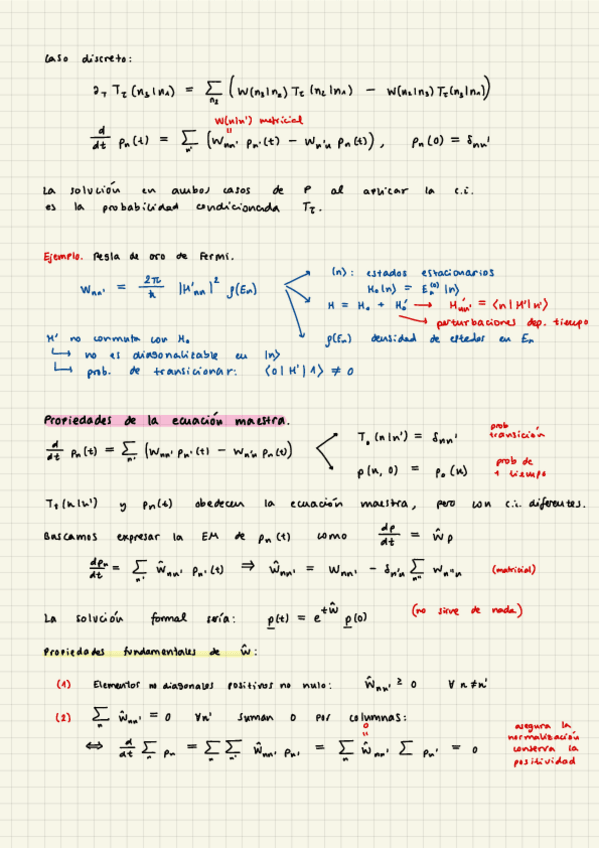 Caso discreto:
∂τ Tτ(n3|n1) = Σ_{n2} ( W(n3|n2) Tτ(n2|n1) − W(n2|n3) Tτ(n3|n1) )
W(n|n') matricial
d/dt pn(t) = Σ_{n'} ( Wnn' pn'(t) − Wn'n pn(t) ), pn(0) = δnn'
La solución en ambos casos de P al aplicar la c.i.
es la probabilidad condicionada Tτ.
Ejemplo. Regla de oro de Fermi.
Wnn' = 2π/ħ |H'nn'|² ρ(En)
|n⟩: estados estacionarios
H0|n⟩ = En^(0) |n⟩
H = H0 + H0' → H'nn' = ⟨n|H'|n'⟩
perturbaciones dep. tiempo
ρ(En) densidad de estados en En
H' no conmuta con H0
↳ no es diagonalizable en |n⟩
↳ prob. de transicionar: ⟨0|H'|1⟩ ≠ 0
Propiedades de la ecuación maestra.
d/dt pn(t) = Σ_{n'} ( Wnn' pn'(t) − Wn'n pn(t) )
T0(n|n') = δnn' prob transición
p(n, 0) = p0(n) prob de 1 tiempo
Tt(n|n') y pn(t) obedecen la ecuación maestra, pero con c.i. diferentes.
Buscamos expresar la EM de pn(t) como dp/dt = Ŵp
dpn/dt = Σ_{n'} Ŵnn' pn'(t) ⇒ Ŵnn' = Wnn' − δn'n Σ_{n''} Wn''n (matricial)
La solución formal sería: p(t) = e^{tŴ} p(0) (no sirve de nada)
Propiedades fundamentales de Ŵ:
(1) Elementos no diagonales positivos no nulo: Ŵnn' ≥ 0 ∀ n≠n'
(2) Σ_n Ŵnn' = 0 ∀n' suman 0 por columnas:
⇔ d/dt Σ_n pn = Σ_n Σ_{n'} Ŵnn' pn' = Σ_n Ŵnn' Σ pn' = 0
0
asegura la
normalización
conserva la
positividad